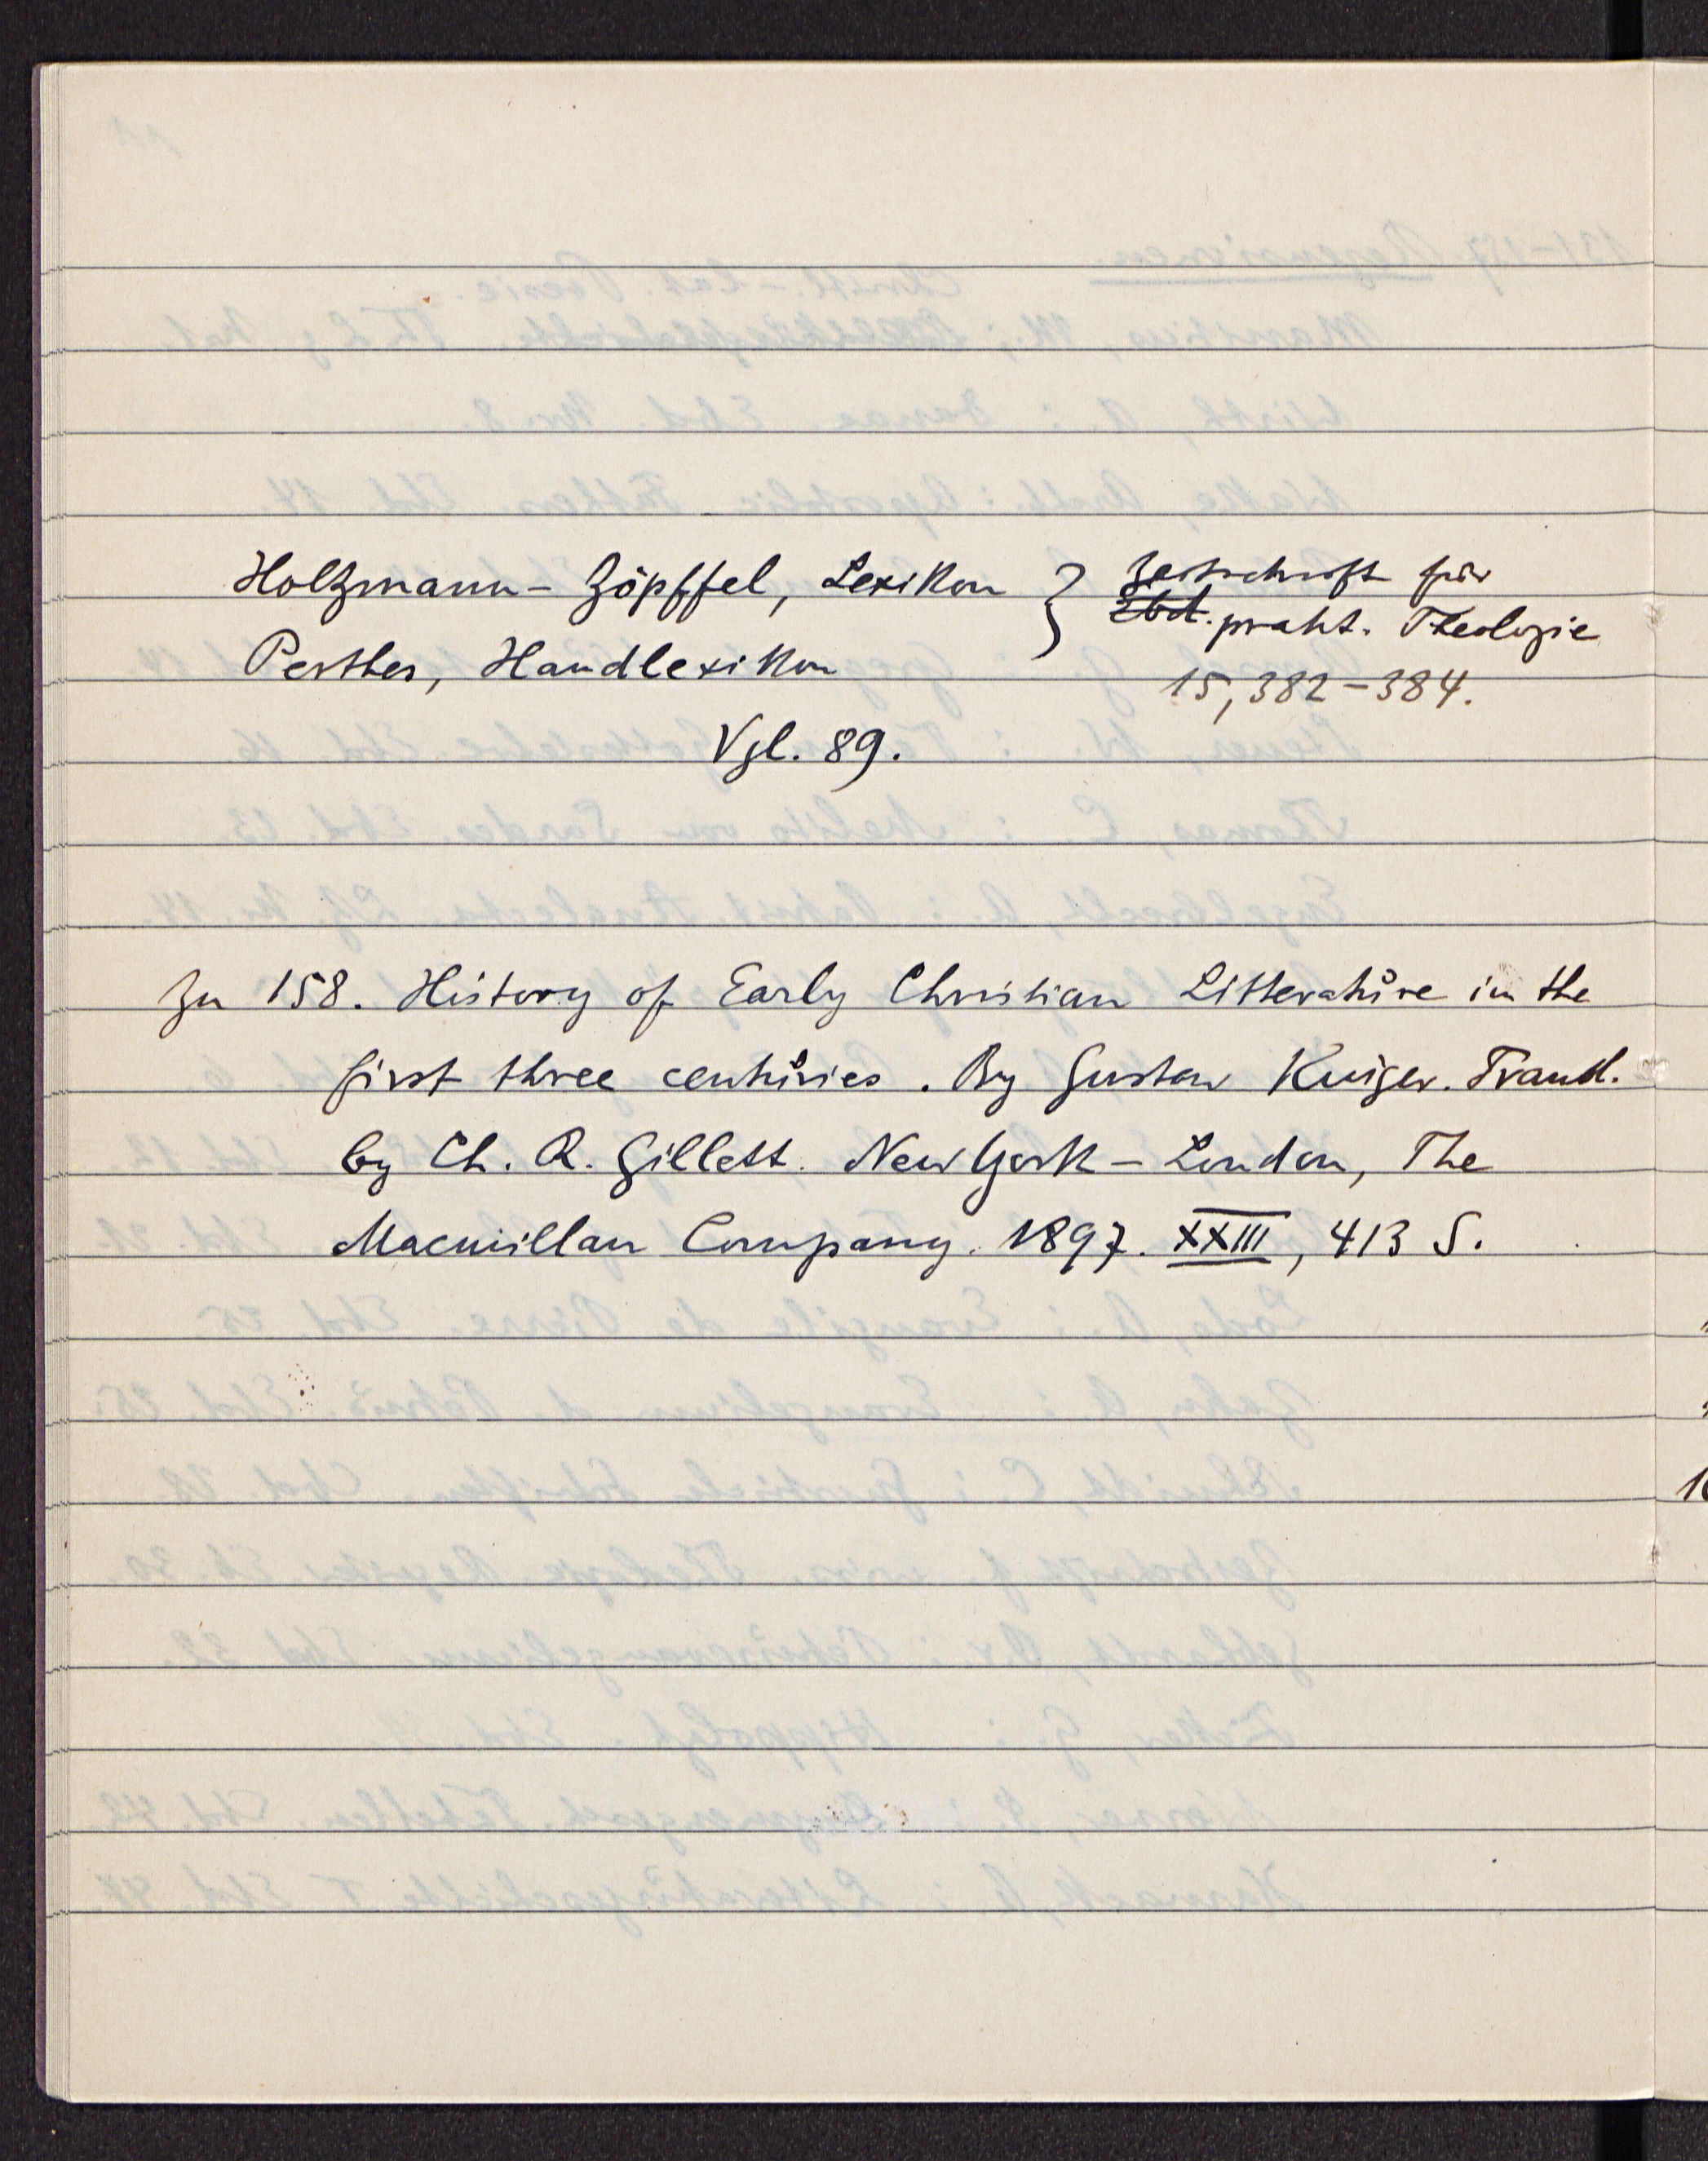 Holtzmann-Zöpffel, Lexikon } Zeitschrift für
Ebd. prakt. Theologie
Perthes, Handlexikon
15, 382-384.
Vgl. 89.
Zu 158. History of Early Christian Litteratŭre in the
first three centŭries. By Gustav Krüger. Transl.
by Ch. R. Gillett. New York - London, The
Macmillan Company. 1897. XXIII, 413 S.